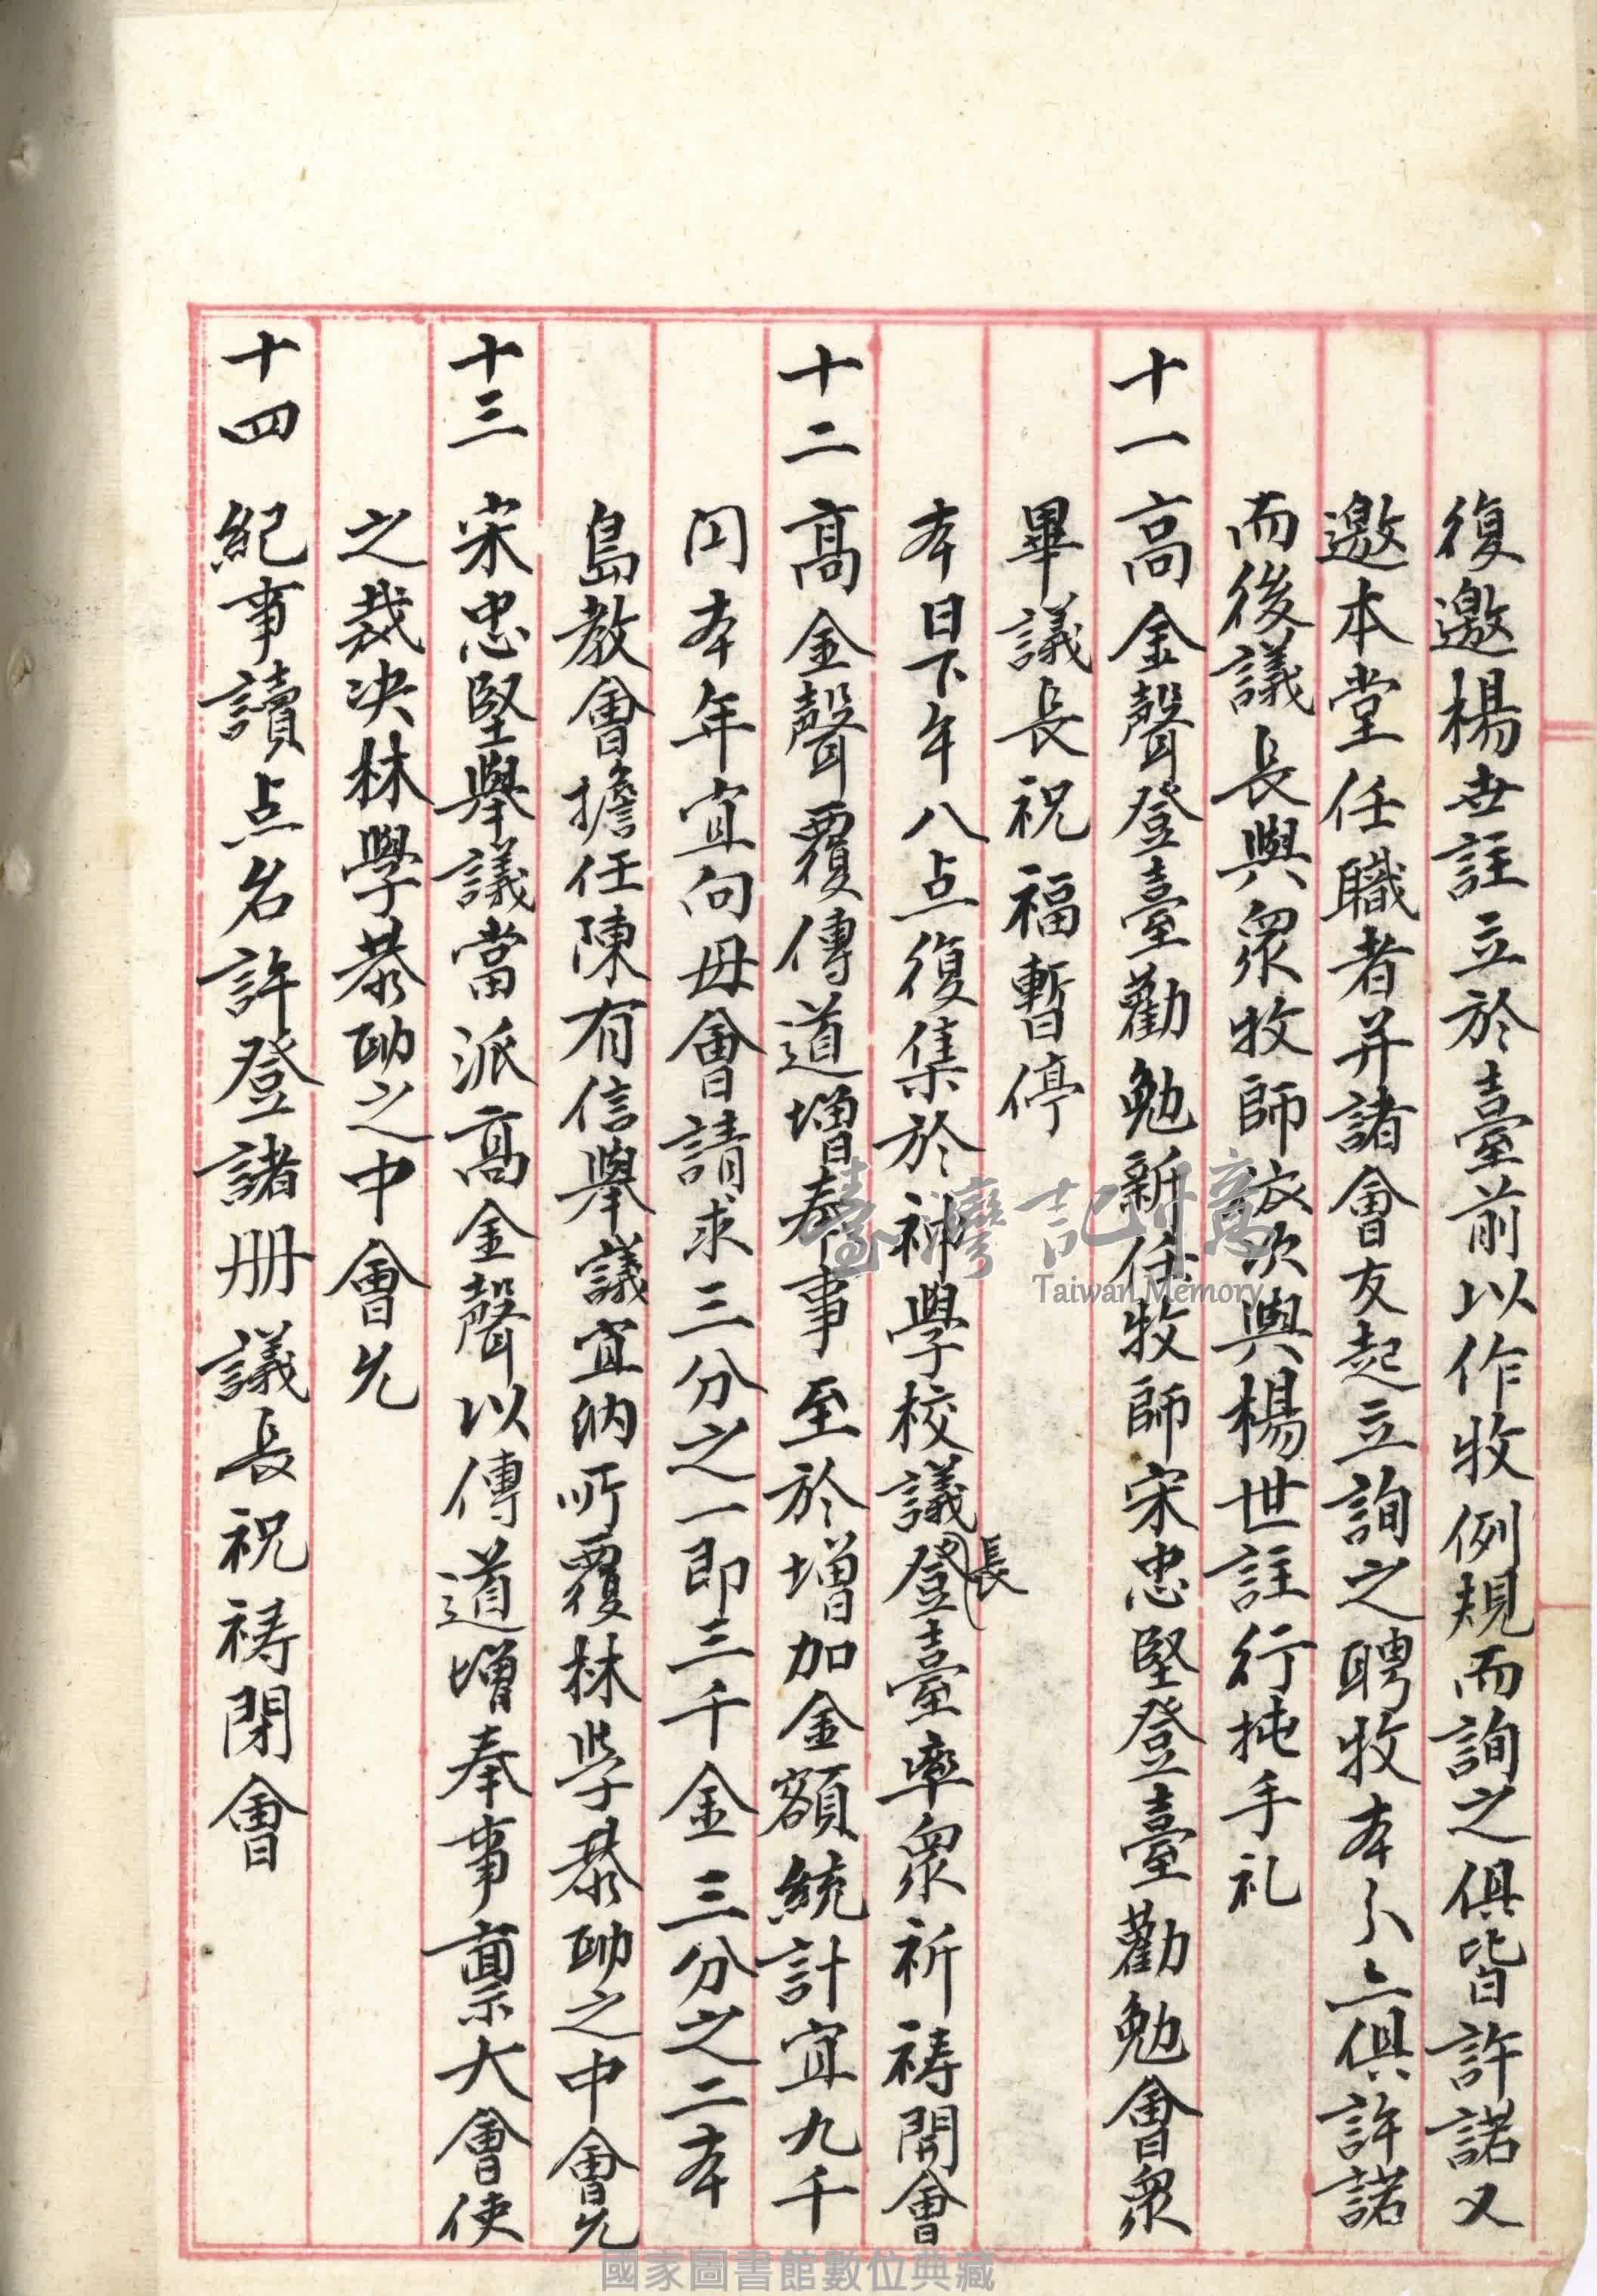 復邀楊世註立於臺前以作牧例規而詢之俱皆許諾又
邀本堂任職者并諸會友起立詢之聘牧本分亦俱許諾
而後議長與眾牧師放欤與楊世註行扽手礼
十一 高金聲登臺勸勉新任牧師宋忠堅登臺勸勉會眾
畢議長祝福暫停
本日下午八点復集於神學校議長登臺率眾祈禱開會
十二 高金聲覆傳道增奉事至於增加金額統計宜九千
円本年宜向母會請求三分之一即三千金三分之二本
島教會擔任陳有信舉議宜納所覆林学恭助之中會允
十三 宋忠堅舉議當派高金聲以傳道增奉事稟大會使
之裁决林學恭助之中會允
十四 紀事讀点名許登諸册議長祝禱閉會
臺灣記憶
Taiwan Memory
國家圖書館數位典藏